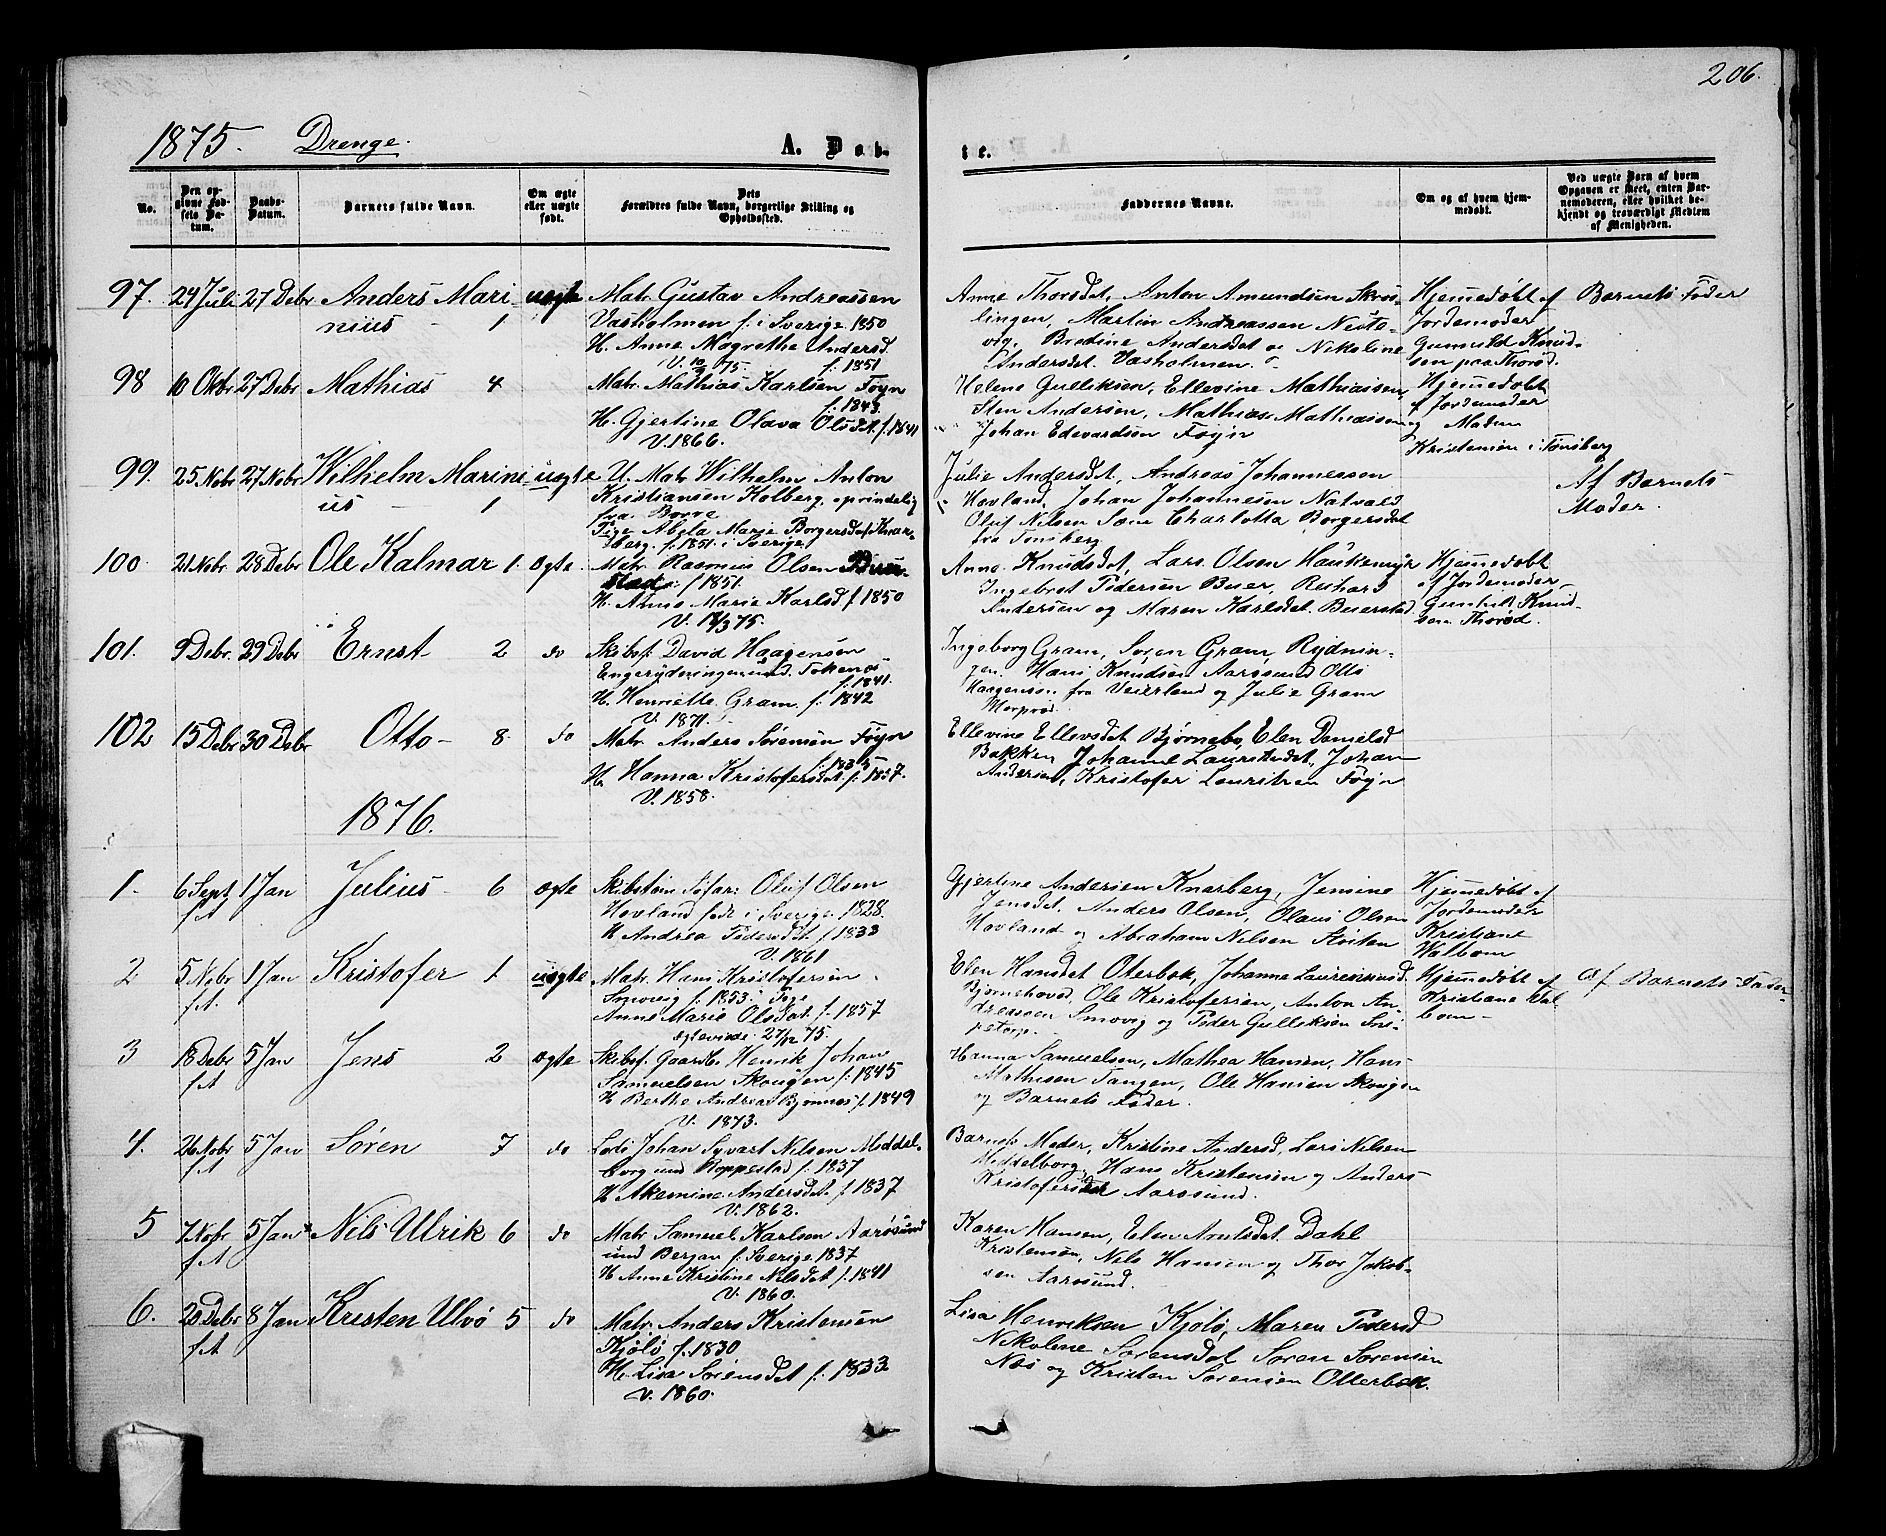 206.
1875. Drenge.
A. Døb-
te.
No.
Den op-
givne Fød-
sels Da-
tum.
Daabs-
Datum.
Barnets fulde Navn.
Om ægte
eller uægte
født.
Dets
Forældres fulde Navn, borgerlige Stilling og
Opholdssted.
Faddernes Navne.
Om og af hvem hjem-
medøbt.
Ved uægte Børn af hvem
Opgaven er skeet, enten Bar-
nemoderen, eller hvilket be-
kjendt og troværdigt Medlem
af Menigheden.
97. 24 Juli 27 Debr Anders Mari-
nius - 1
uægte
Matr Gustav Andreassen
Vasholmen f. i Sverige 1850
H. Anne Magrethe Andersd.
V. 10/9 75. f. 1851
Anne Thorsdt, Anton Amundsen Skros-
lingen, Martin Andreassen Neste-
vig, Bredine Andersdt og Nikoline
Andersdt. Vasholmen.
Hjemmedøbt af
Jordemoder
Gunhild Knud-
sen paa Thorød.
Barnets Fader
98 10 Oktbr 27 Debr Mathias 4
Matr. Mathias Karlsen Føyn
f. 1843.
H. Gjertine Olava Olsdt. f. 1841
V. 1866.
Helene Gulliksen, Ellevine Mathiassen,
Sten Andersen, Mathias Mathiassen
Johan Edevardsen Føyn
Hjemmedøbt
af Jordemoder
og Madm
Kristensen i Tønsberg
99. 25 Nobr 27 Nobr Wilhelm Marini-
us - 1
uægte
U. Matr Wilhelm Anton
Kristiansen Kolberg, oprindelig
fra Borre
Pige Abela Marie Borgersdt. Knar-
berg. f. 1851. i Sverige
Julie Andersdt, Andreas Johannessen
Hovland, Johan Johannesen Natvald
Oluf Nilsen Sæm Charlotta Borgersdt
fra Tønsberg
Af Barnets
Moder.
100. 21 Nobr 28 Debr Ole Kalmar 1. Ægte.
Matr Rasmus Olsen Buer-
stad f. 1851.
H. Anne Marie Karlsd f. 1850
V. 18/3 75.
Anne Knudsdt, Lars Olsen Haukemyr
Ingebret Pedersen Buer, Rikard
Andersen og Maren Karlsdt. Buerstad
Hjemmedøbt
af Jordemoder
Gunhild Knud-
sen Thorød.
101. 9 Debr. 29 Debr Ernst 2 do
Skibsf. David Haagensen
Engerydningen und.
f. 1841.
H. Henriette Gram. f. 1842
V. 1871.
Ingeborg Gram, Søren Gram Rydnin-
gen. Hans Knudsen Aarøsund Otto
Haagensen fra Veierland og Julie Gram
102 15 Debr 30 Debr Otto - 8. do
Matr. Anders Sørensen Føyn
f. 1835
H. Hanna Kristofersdt. f. 1837.
V. 1858.
Ellevine Ellevsdt Bjørnebo, Elen Danielsd
Bakken Johanne Lauritsdt., Johan
Andersen, Kristofer Lauritzen Føyn
1876.
1. 6 Sept. 1 Jan Julius - 6 ægte
f.A.
Skibstøm. Søfar: Oluf Olsen
Hovland født i Sverige 1828.
H Andrea Pedersdt f. 1833
V. 1861
Gjertine Andersen Knarberg, Jensine
Jensdt. Anders Olsen, Olaus Olsen
Hovland og Abraham Nilsen Hviten
Hjemmedøbt af
Jordemoder
Kristiane
Walbom
2 5 Nobr 1 Jan Kristofer 1 uægte
f.A.
Matr. Hans Kristofersen
Smovig f. 1853. Pige
Anne Marie Olsdat. f. 1857
Ægteviede 27/12 75.
Elen Hansdt Oterbæk, Johanne Laurensiusd.
Bjørnehoved, Ole Kristofersen, Anton An-
dreassen Smovig og Peder Gulliksen Sni-
petorp.
Hjemmedøbt af
Kristiane Wal-
bom -
Af Barnets Fader-
3 18 Debr 5 Jan Jens 2 ægte
f.A
Skibsf. Gaardbr. Henrik Johan
Samuelsen Skougen f. 1845
H Berthe Andrea Bjønnes f. 1849
V. 1873.
Hanna Samuelsen, Mathea Hansen, Hans
Mathisen Tangen, Ole Hansen Skougen
og Barnets Fader.
4. 26 Nobr 5 Jan Søren 7 do
f.A
Lods Johan Syvart Nilsen Middel-
borg und Roppestad f. 1837
H. Akemine Andersdt. f. 1837
V. 1862.
Barnets Moder, Kristine Andersd, Lars Nilsen
Middelborg, Hans Kristensen og Anders
Kristofersen Aarøsund.
5 7 Nobr 5 Jan Nils Ulrik 6 do
f.A.
Matr Samuel Karlsen Aarøsund
und Bergan f. Sverige 1837
H Anne Kristine Nilsdt f. 1841
V. 1860.
Karen Hansen, Elen Arntsdt. Dahl
Kristensen, Nils Hansen og Thor Jakob-
sen Aarøsund.
6. 20 Debr 8 Jan Kristen Ulvø 5 do
f.A
Matr. Anders Kristensen
Kjølø f. 1830
H. Lisa Sørensdt f. 1833
V. 1860.
Lisa Henriksen Kjølø, Maren Pedersd
Nikolene Sørensdt Søren Sørensen
Næs og Kristen Sørensen Otterbæk.